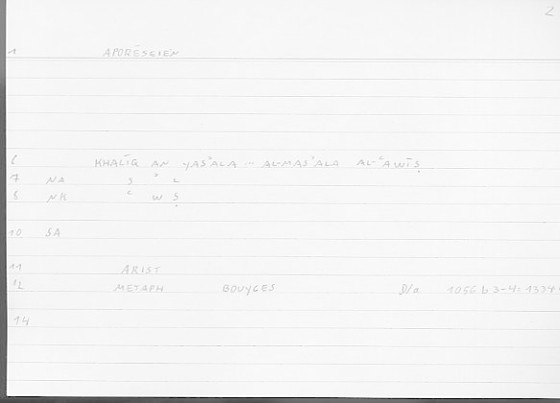 2
1 APORĒSEIEN
6 KHALĪQ AN YAS'ALA ... AL-MAS'ALA AL-ʿAWĪṢ
7 NA S ' L
8 NK ʿ W Ṣ
10 SA
11 ARIST
12 METAPH BOUYGES 8/a 1056 b 3-4: 1334
14